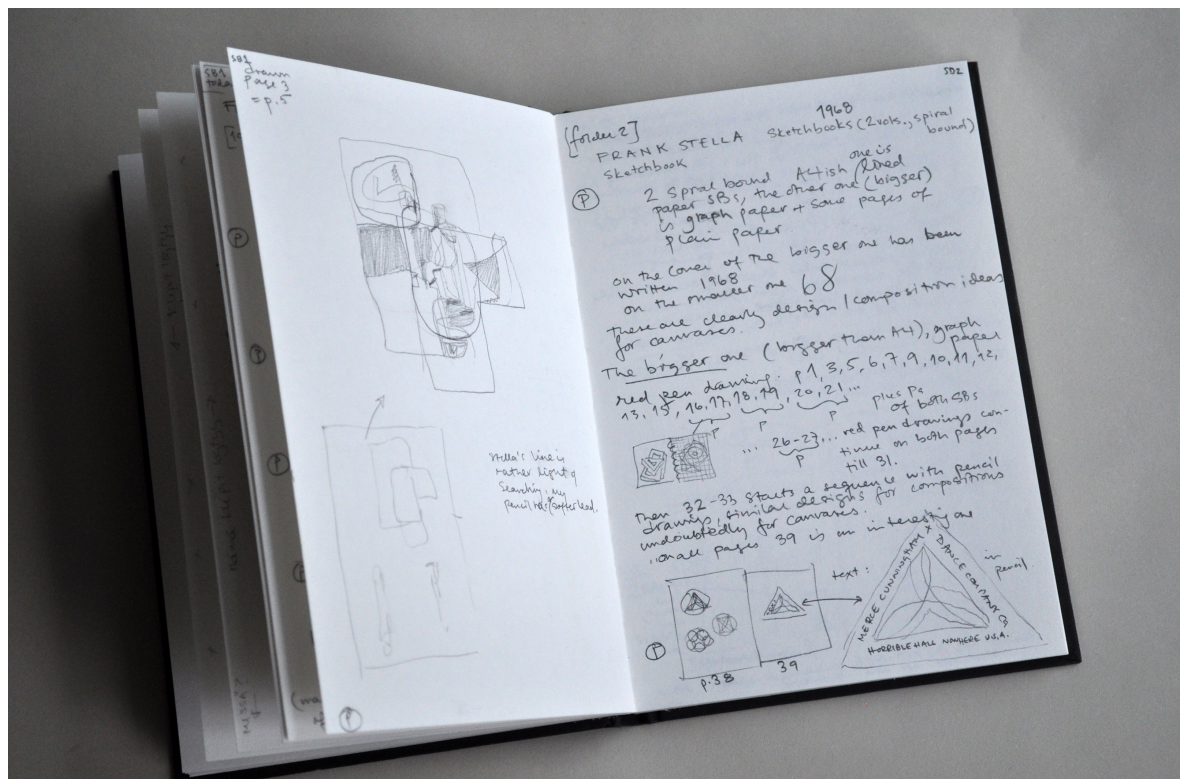 SB1
drawn
page 3
= p.5
Stella's line is
rather light &
searching, my
pencil has softer lead.
SB2
[folder 2]
1968
FRANK STELLA Sketchbooks (2 vols., spiral
bound)
Sketchbook
P
2 spiral bound A4ish one is
paper SBs, the other one (lined
(bigger)
is graph paper + some pages of
plain paper
on the cover of the bigger one has been
written 1968
on the smaller one 68
these are clearly design/composition ideas
for canvases.
The bigger one (bigger than A4), graph
paper
red pen drawing. p 1, 3, 5, 6, 7, 9, 10, 11, 12,
13, 15, 16, 17, 18, 19, 20, 21 ...
P P P
plus Ps
of both SBs
... 26-27 ... red pen drawings con-
P
tinue on both pages
till 31.
then 32-33 starts a sequence with pencil
drawings, similar designs for compositions
undoubtedly for canvases.
pages 39 is an interesting one
P
p.38
39
text:
MERCE CUNNINGHAM & DANCE COMPANY
HORRIBLE HALL NOWHERE U.S.A.
in
pencil.